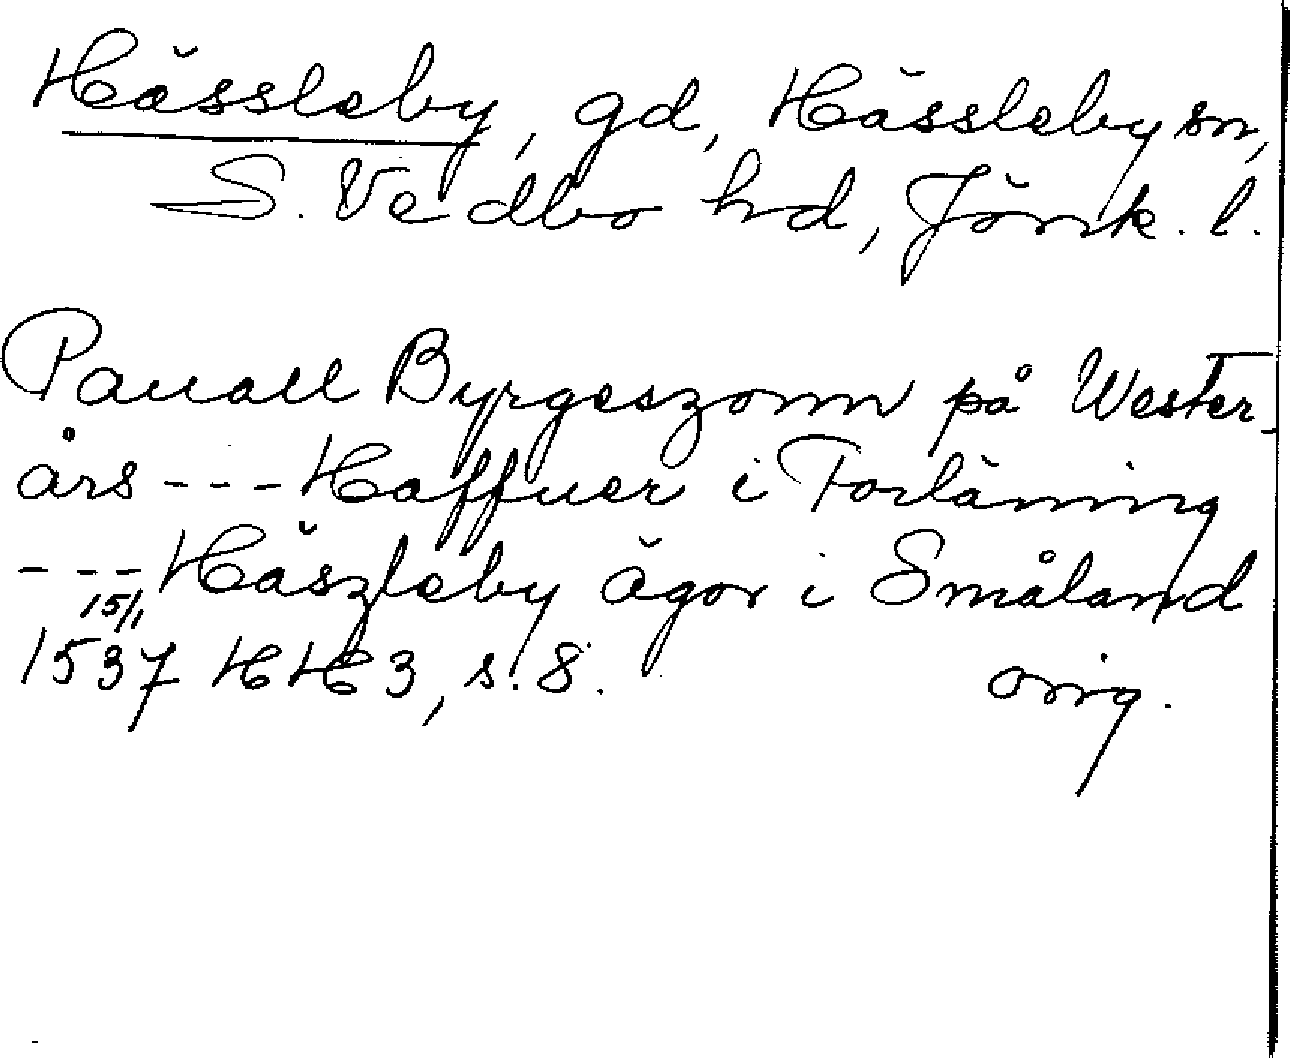 Hässleby, gd, Hässleby sn,
S. Vedbo hd, Jönk. l.
Pauall Byrgeszonn på Wester-
års --- Haffuer i Forläning
--- Häszleby ägor i Småland
15/1
1537 HH 3, s. 8. orig.